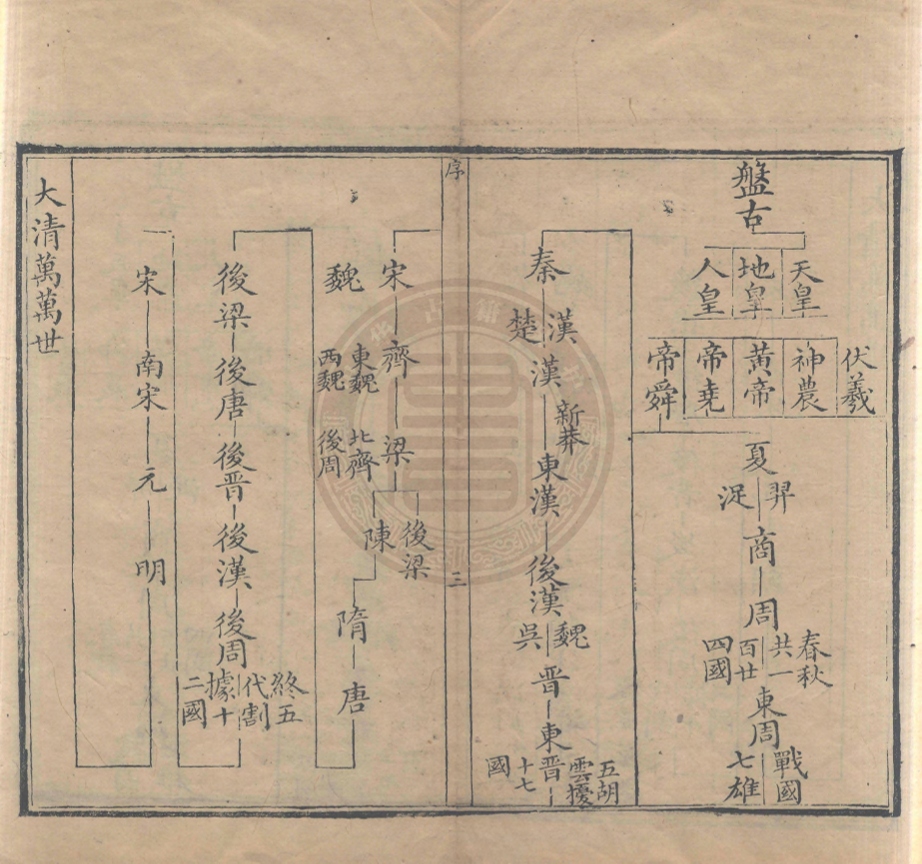 盤古
天皇
地皇
人皇
伏羲
神農
黃帝
帝堯
帝舜
夏
羿
浞
商
周
春秋
共一
百廿
四國
東周
戰國
七雄
秦
漢
楚
漢
新莽
東漢
後漢
魏
吳
晋
東晋
五胡
雲擾
十七
國
序
三
宋
齊
梁
後梁
陳
魏
東魏
西魏
北齊
後周
隋
唐
後梁
後唐
後晋
後漢
後周
終五
代割
據十
二國
宋
南宋
元
明
大清萬萬世